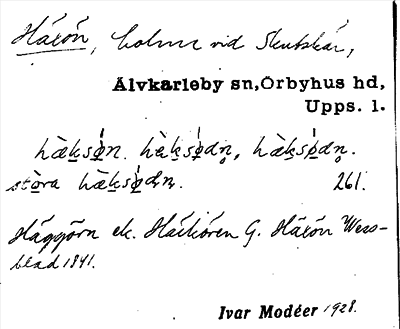 Häxön, holme vid Skutskär,
Älvkarleby sn, Örbyhus hd,
Upps. l.
hàksøn. hàksødn, hàksødn.
stòra hàksødn. 261.
Häggörn ek. Häckören G. Häxön Wess-
blad 1841.
Ivar Modéer 1928.